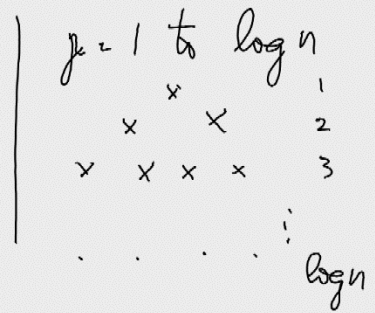 k = 1 to log n
x 1
x x 2
x x x x 3
⋮
. . . . log n